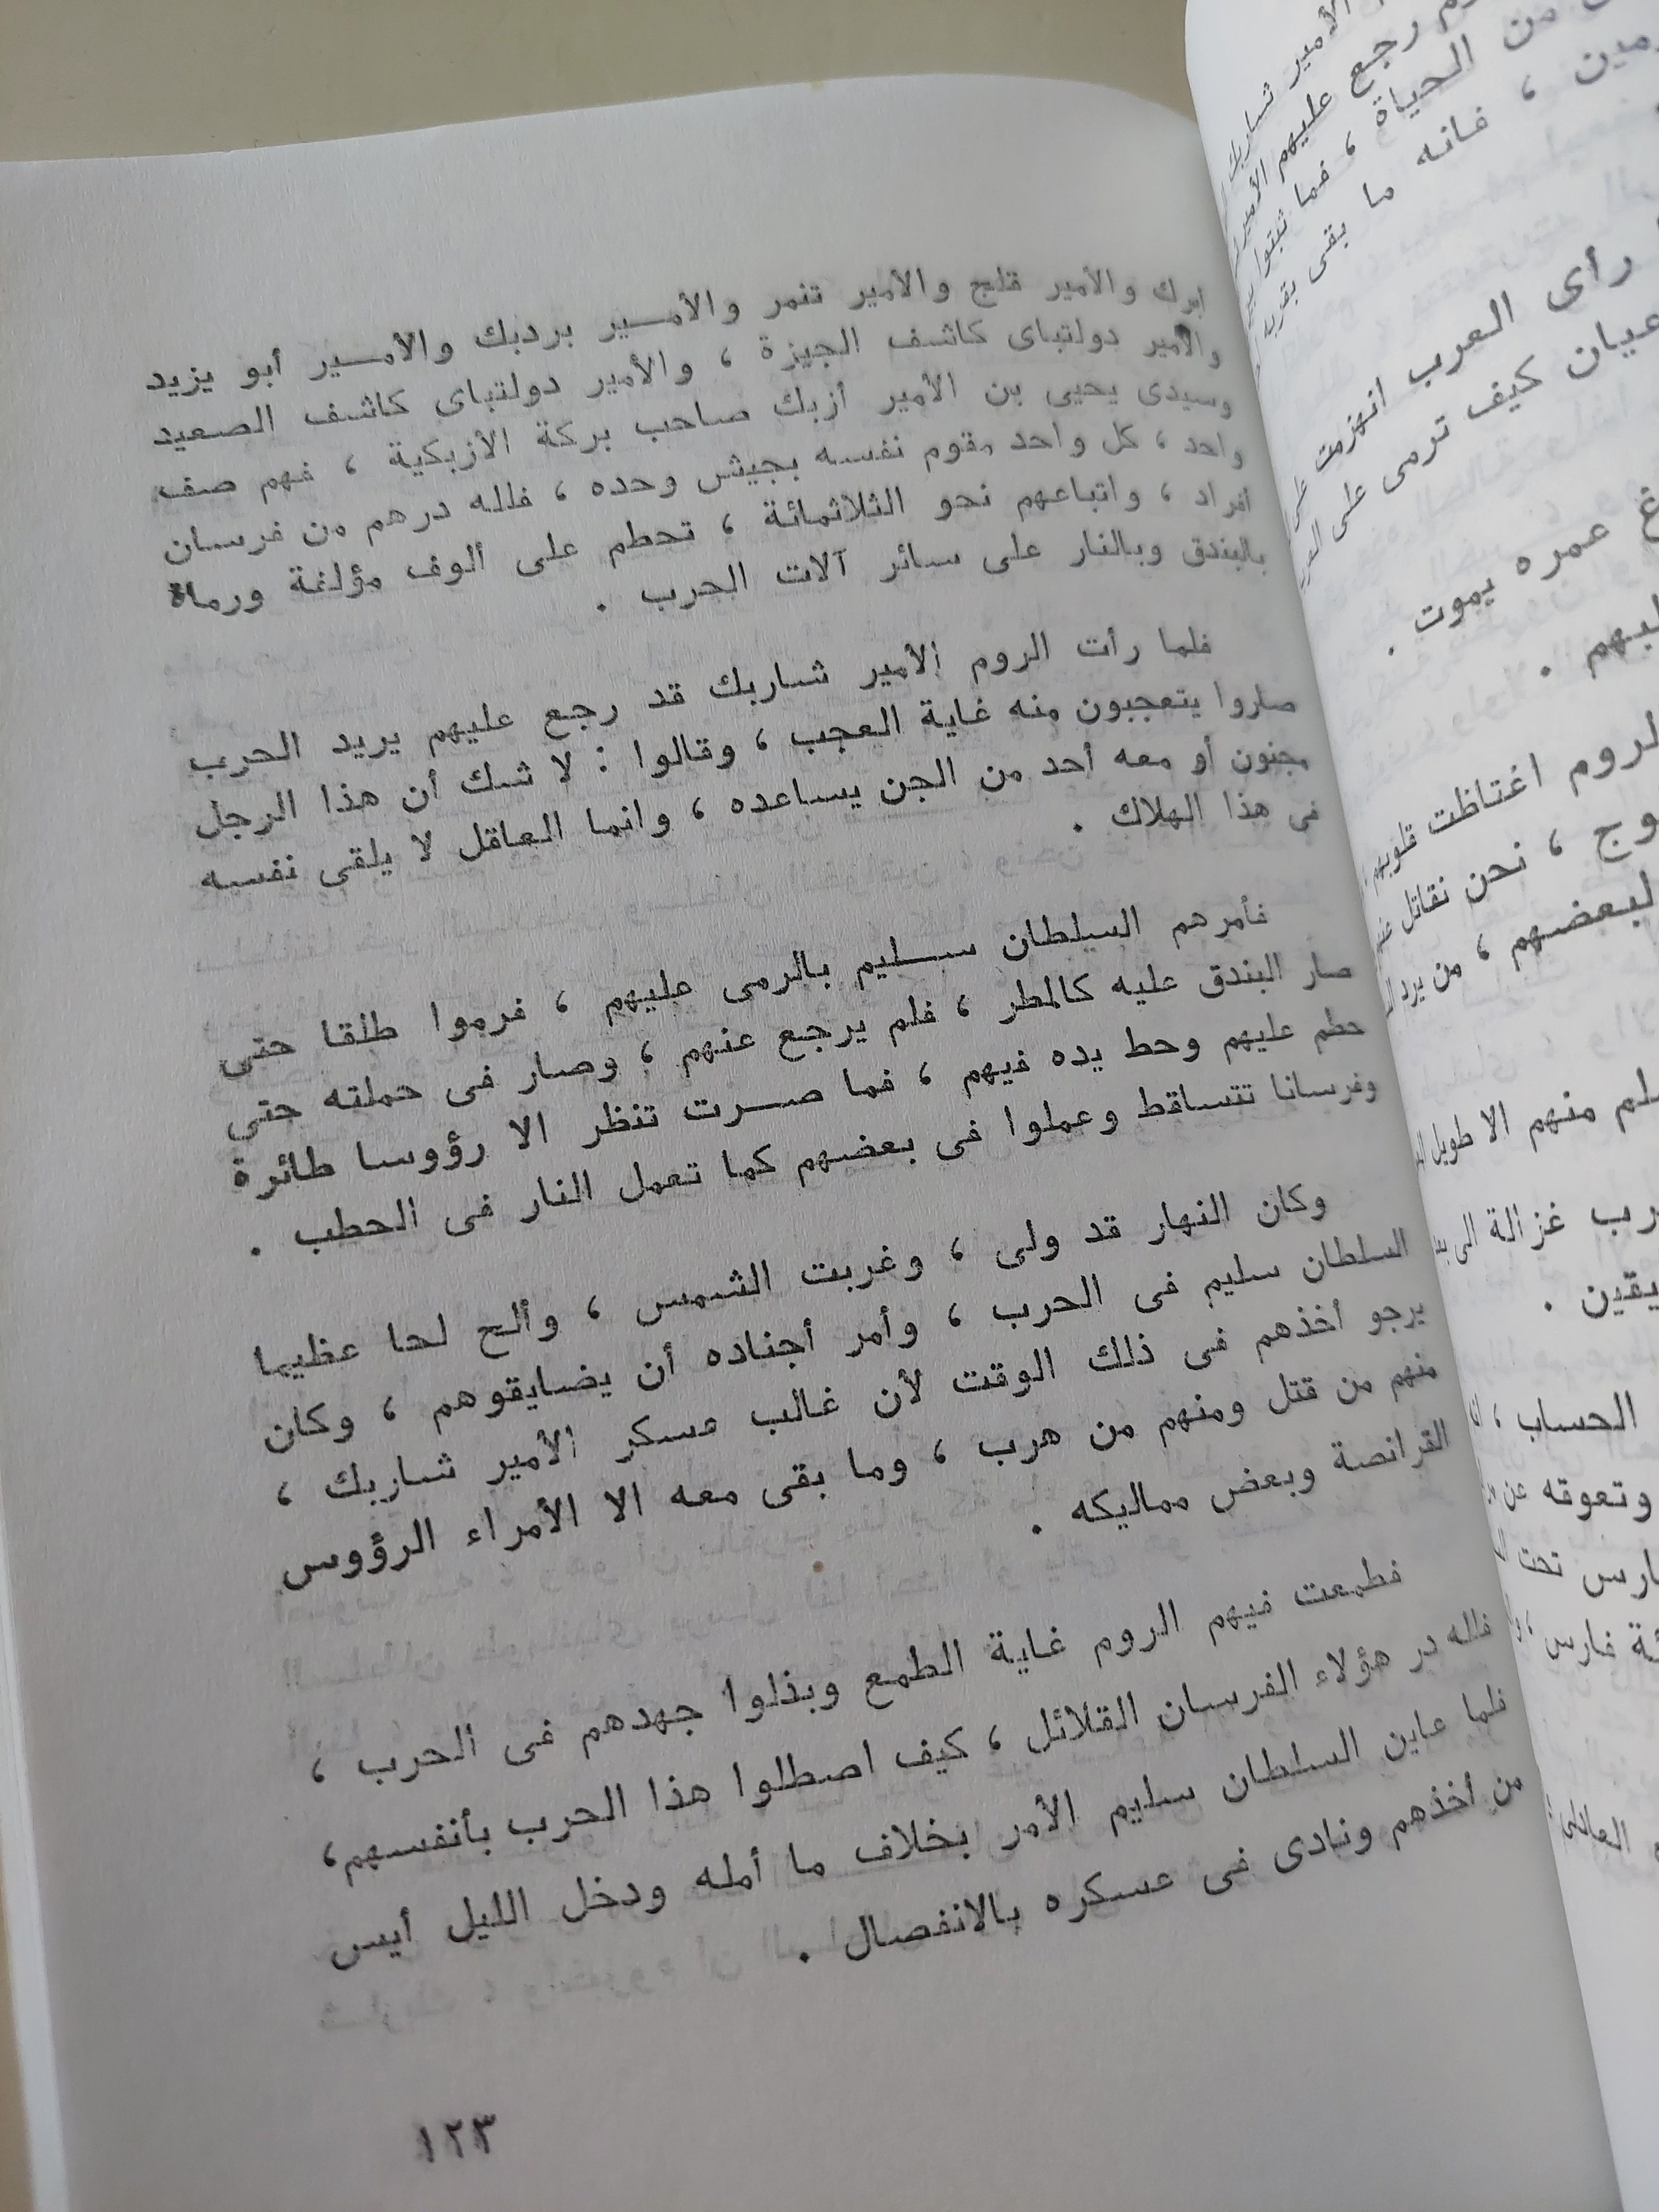 ابرك والأمير قلج والأمير تنمر والأمــير بردبك والأمــير أبو يزيد
والأمير دولتباى كاشف الجيزة ، والأمير دولتباى كاشف الصعيد
وسيدى يحيى بن الأمير أزبك صاحب بركة الأزبكية ، فهم صف
واحد ، كل واحد مقوم نفسه بجيش وحده ، فلله درهم من فرسان
أفراد ، واتباعهم نحو الثلاثمائة ، تحطم على ألوف مؤلفة ورماة
بالبندق وبالنار على سائر آلات الحرب .
فلما رأت الروم الأمير شاربك قد رجع عليهم يريد الحرب
صاروا يتعجبون منه غاية العجب ، وقالوا : لا شك أن هذا الرجل
مجنون أو معه أحد من الجن يساعده ، وانما العاقل لا يلقى نفسه
فى هذا الهلاك .
فأمرهم السلطان ســليم بالرمى عليهم ، فرموا طلقا حتى
صار البندق عليه كالمطر ، فلم يرجع عنهم ، وصار فى حملته حتى
حطم عليهم وحط يده فيهم ، فما صــرت تنظر الا رؤوسا طائرة
وفرسانا تتساقط وعملوا فى بعضهم كما تعمل النار فى الحطب .
وكان النهار قد ولى ، وغربت الشمس ، وألح لحا عظيما
السلطان سليم فى الحرب ، وأمر أجناده أن يضايقوهم ، وكان
يرجو أخذهم فى ذلك الوقت لأن غالب عسكر الأمير شاربك ،
منهم من قتل ومنهم من هرب ، وما بقى معه الا الأمراء الرؤوس
القرانصة وبعض مماليكه .
فطمعت فيهم الروم غاية الطمع وبذلوا جهدهم فى الحرب ،
فلله در هؤلاء الفرسان القلائل ، كيف اصطلوا هذا الحرب بأنفسهم،
فلما عاين السلطان سليم الأمر بخلاف ما أمله ودخل الليل أيس
من أخذهم ونادى فى عسكره بالانفصال .
١٢٣
الأمير شاربك
رجع عليهم الأمير
من الحياة ، فما ثبتوا
، فانه ما بقى يقربه
رأى العرب انهزمت
كيف ترمى على
عمره يموت .
اغتاظت قلوبهم
، نحن نقاتل
لبعضهم ، من يرد
منهم الا طويل
غزالة الى
الحساب ،
وتعوقه عن
تحت
فارس ،